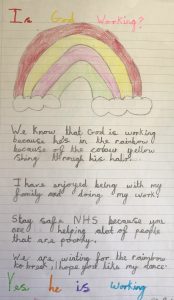 Is God Working?
We Know that God is working
because he's in the rainbow
because of the colour yellow
shing through his halo.
I have enjoyed being with my
family and doing my work.
Stay safe NHS because you
are helping alot of people
that are poorly.
We are waiting for the rainbow
to break, I hope you like my dance.
Yes he is Working